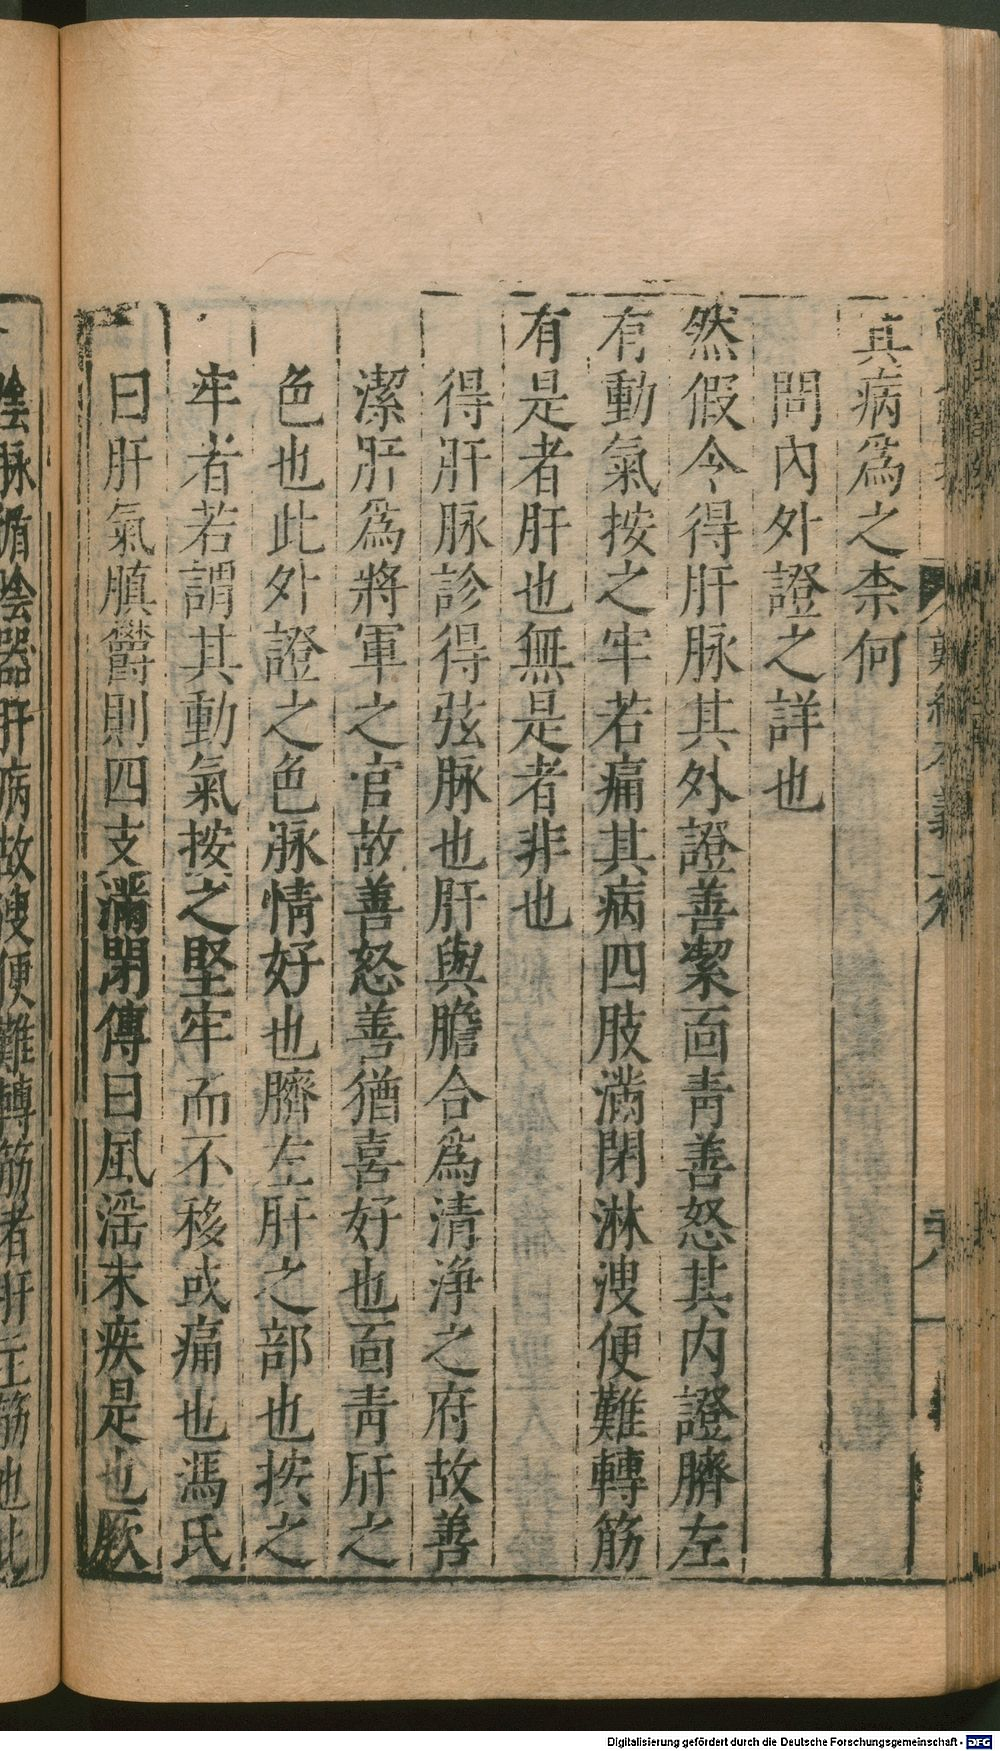 難經本義上卷
其病爲之柰何
問內外證之詳也
然假令得肝脉其外證善㓗面青善怒其内證臍左
有動氣按之牢若痛其病四肢滿閉淋溲便難轉筋
有是者肝也無是者非也
得肝脉診得弦脉也肝與膽合爲清淨之府故善
潔肝爲將軍之官故善怒善猶喜好也面青肝之
色也此外證之色脉情好也臍左肝之部也按之
牢者若謂其動氣按之堅牢而不移或痛也馮氏
曰肝氣䐜鬱則四支滿閉傳曰風淫末疾是也厥
陰脉循陰器肝病故溲便難轉筋者肝主筋也此
Digitalisierung gefördert durch die Deutsche Forschungsgemeinschaft - DFG